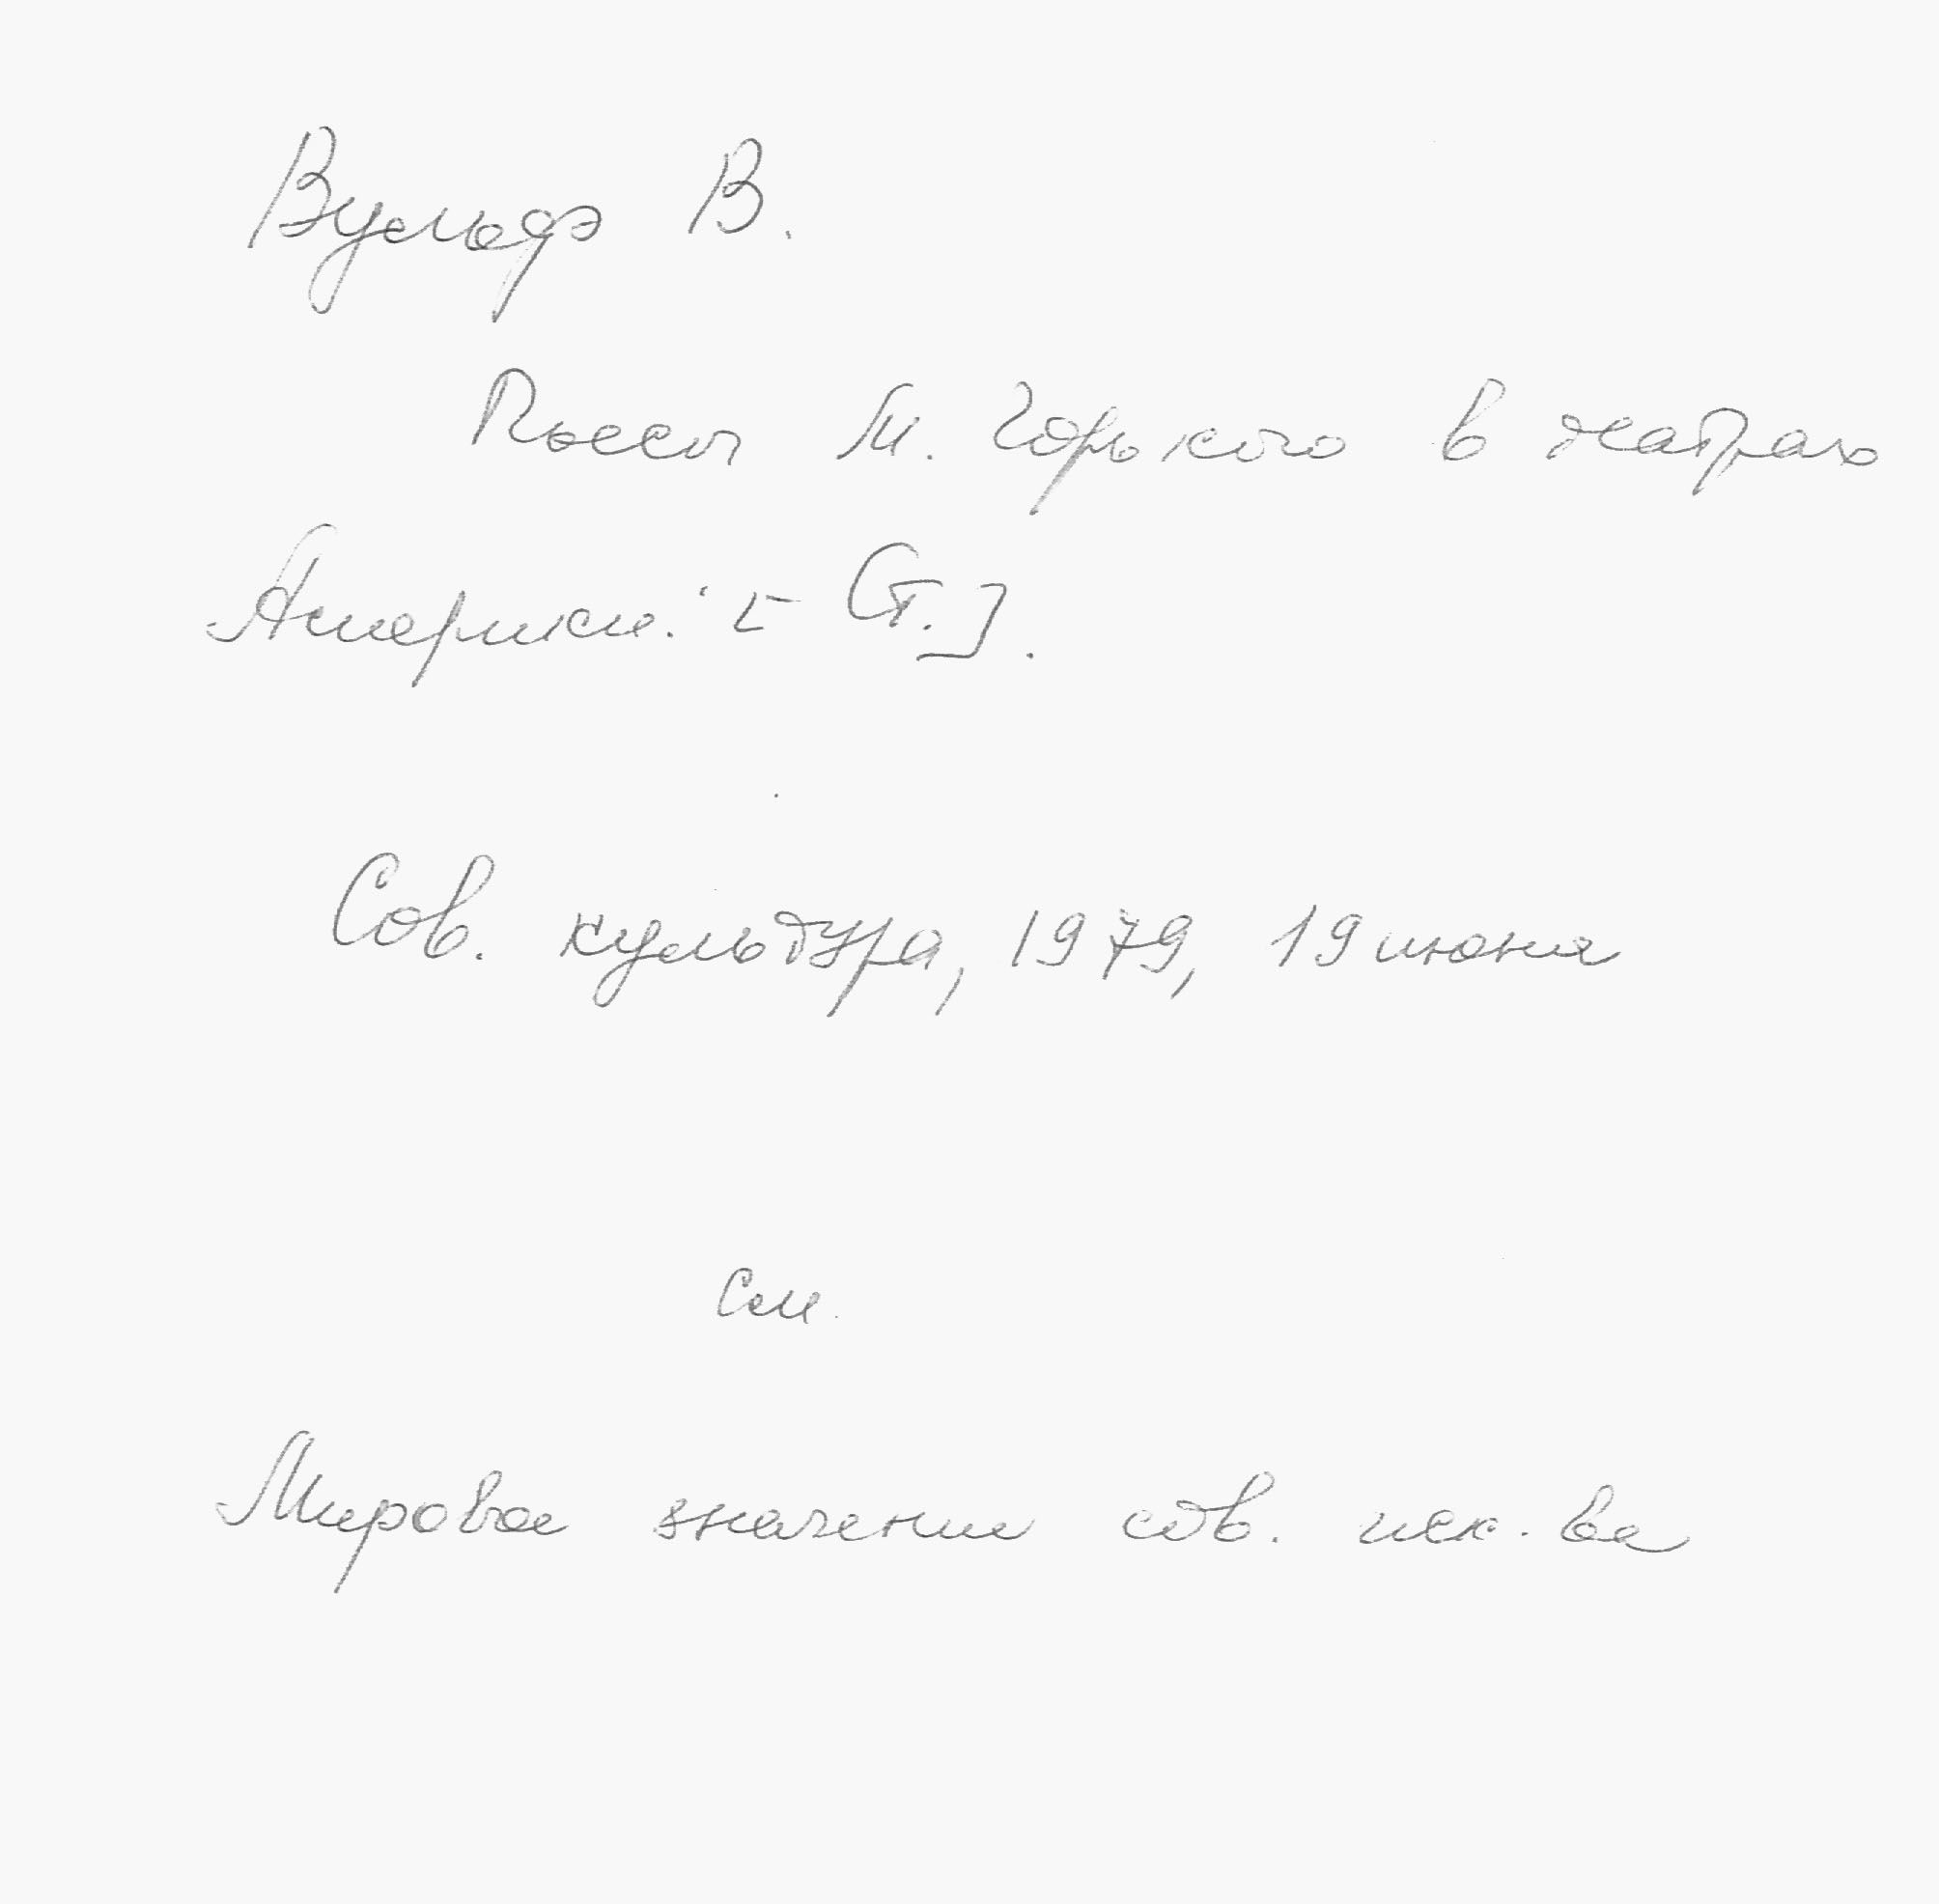 Вульф В.
Пьесы М. Горького в театрах
Америки. [- Ст.].
Сов. культура, 1979, 19 июня
См.
Мировое значение сов. иск-ва